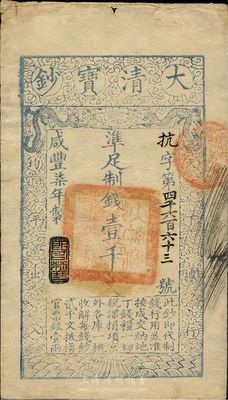 大清寶鈔
抗字第四千六百六十三號
準足制錢壹千文
咸豐柒年製
此鈔即代制
錢行用並准
按成交納地
丁錢糧一切
稅課捐項京
外各庫一概
收解每錢鈔
貳千文抵換
官票銀壹兩
天下通行
均平出入